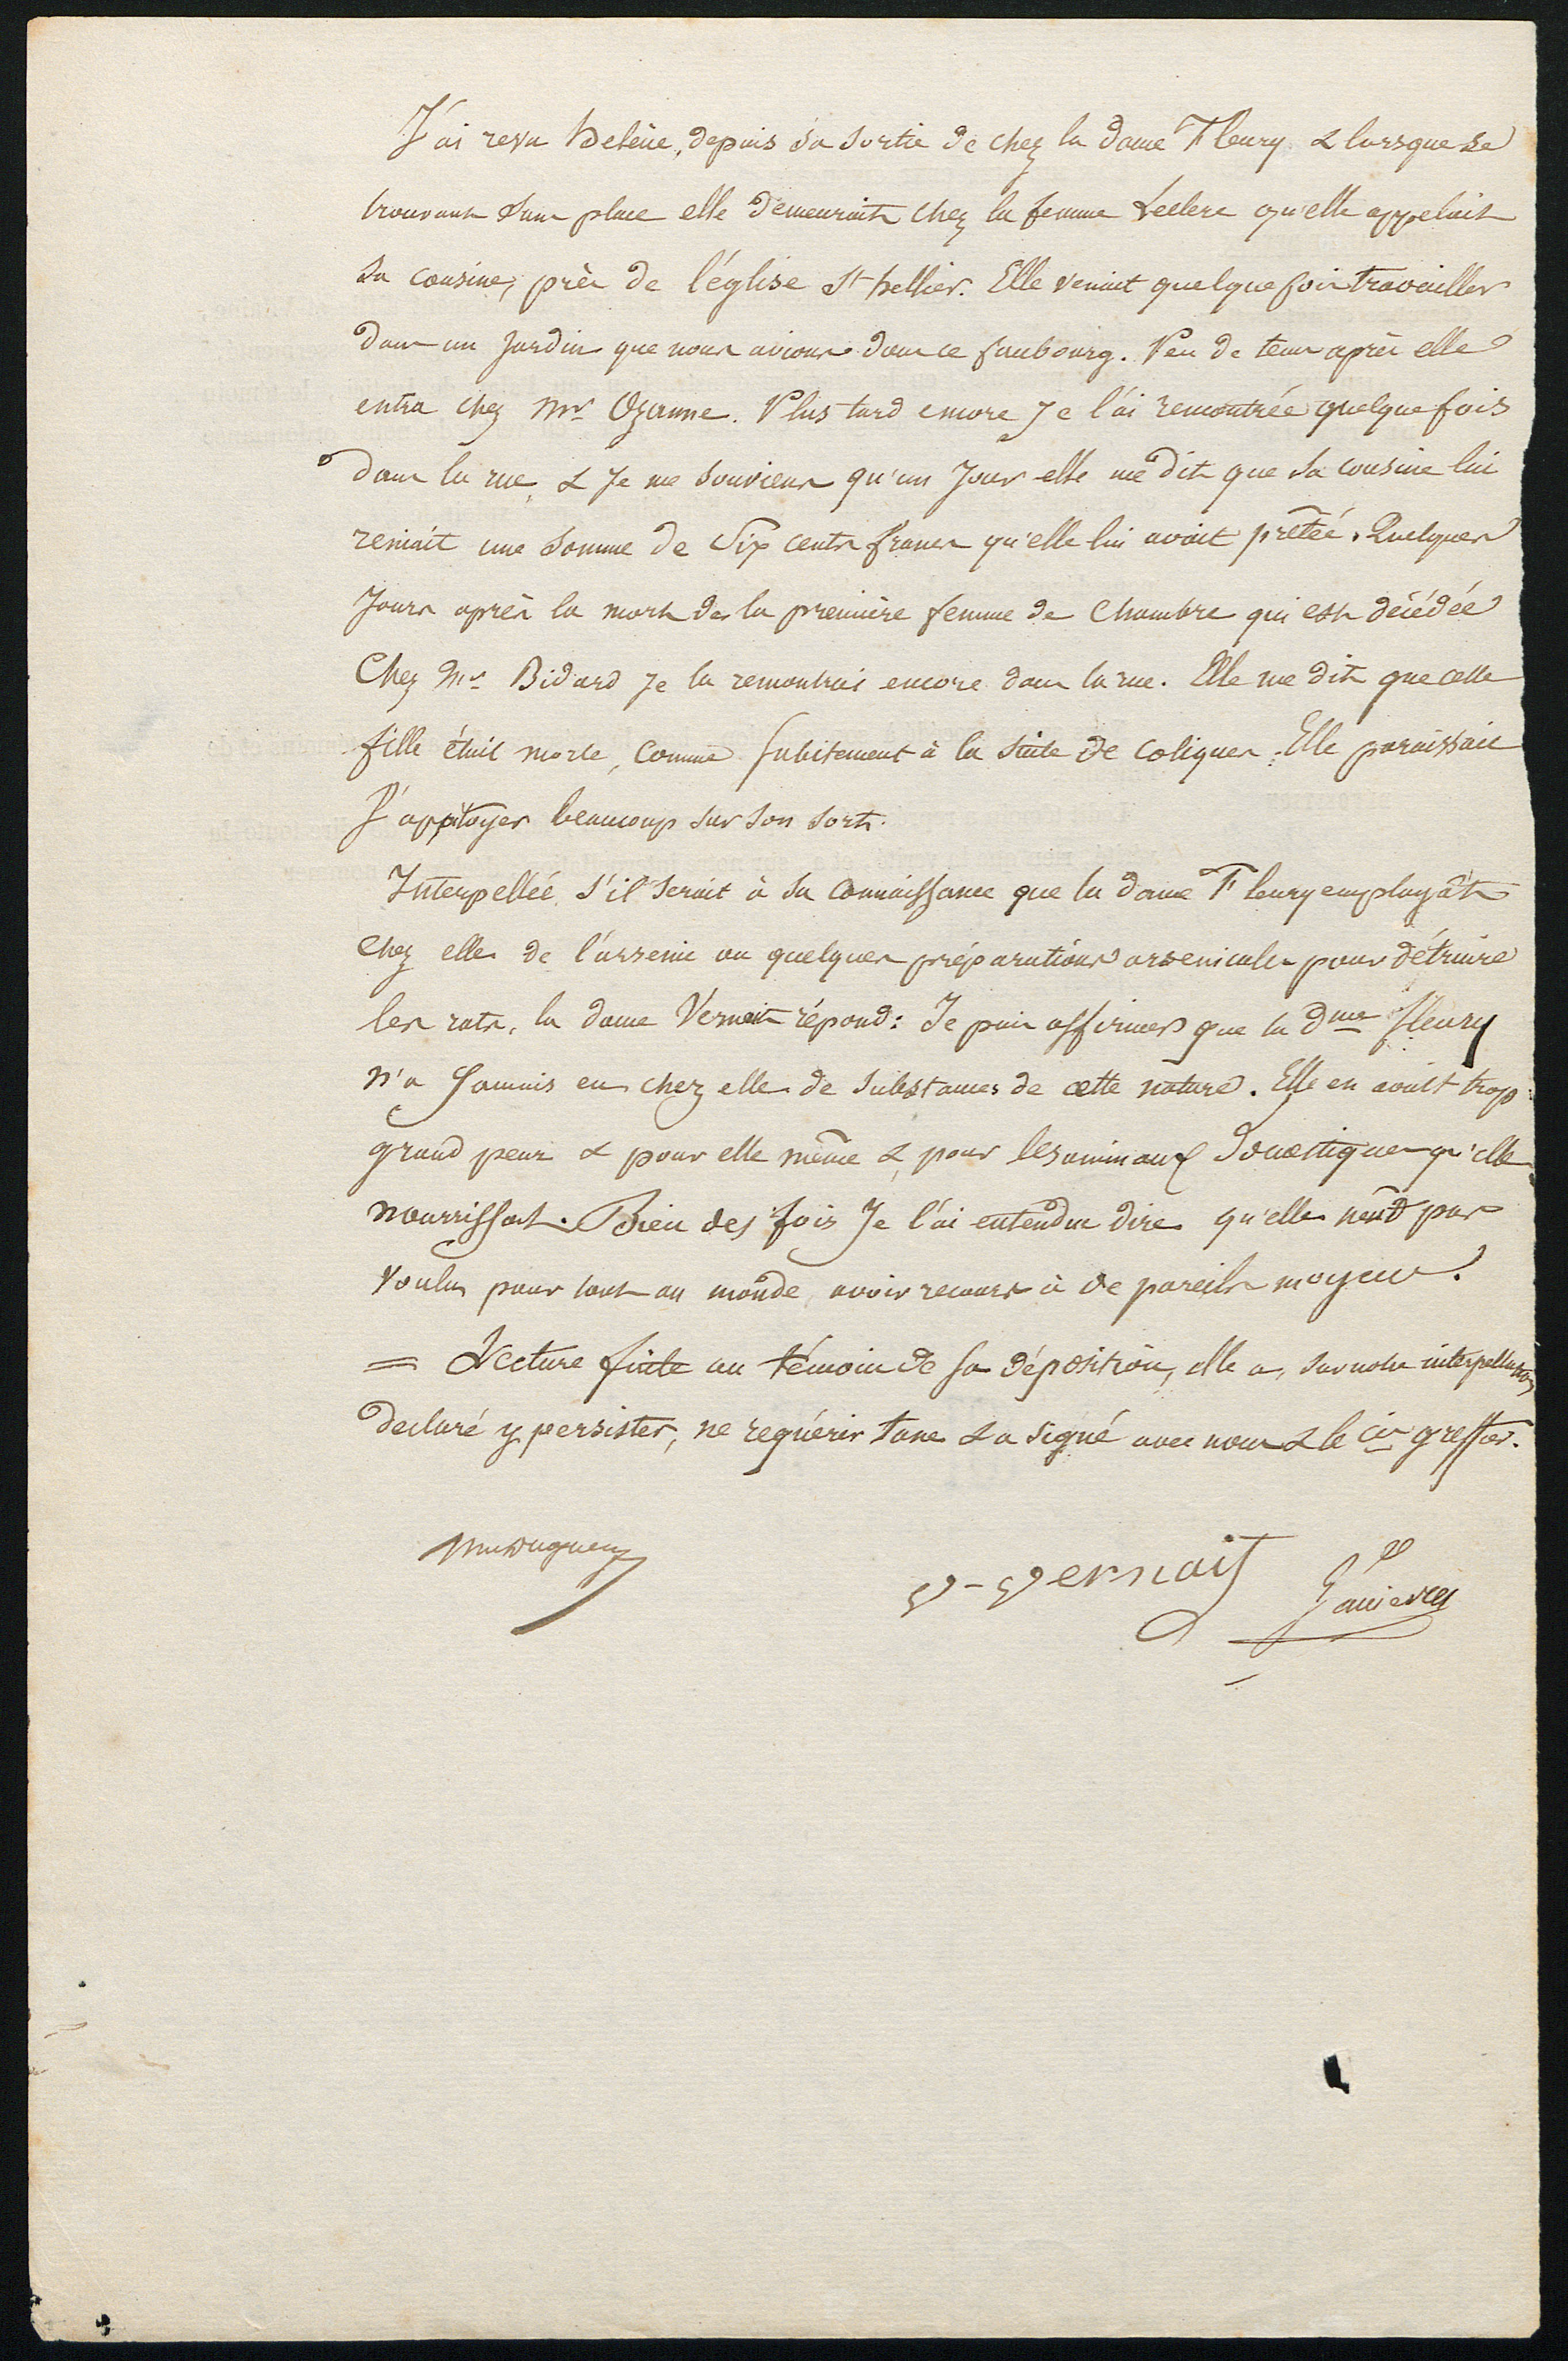 J'ai revu Helène, depuis sa sortie de chez la dame Fleury & lorsque se
trouvant sans place elle demeurait chez la femme Leclerc qu'elle appelait
sa cousine, près de l'église St hellier. Elle venait quelque fois travailler
dans un Jardin que nous avions dans ce faubourg. Peu de tems après elle
entra chez Mr Ozanne. Plus tard encore Je l'ai rencontrée quelque fois
dans la rue, & Je me souviens qu'un Jour elle me dit que sa cousine lui
reniait une somme de Six cents francs qu'elle lui avait prêtée. Quelques
Jours après la mort de la première femme de Chambre qui est décédée
Chez Mr Bidard Je la rencontrai encore dans la rue. Elle me dit que cette
fille était morte, comme subitement à la suite de coliques. Elle paraissait
S'appitoyer beaucoup sur son sort.
Interpellée, s'il serait à sa connaissance que la dame Fleury employât
chez elle de l'arsenic ou quelques préparations arsenicales pour détruire
les rats, la dame Vernait répond: Je puis affirmer que la Dme fleury
n'a Jamais eu chez elle de substances de cette nature. Elle en avait trop
grand peur & pour elle même & pour les animaux Domestiques qu'elle
nourrissait. Bien des fois Je l'ai entendue dire qu'elle n'eût pas
voulu pour tout au monde, avoir recours à de pareils moyens.
= Lecture faite au témoin de sa déposition, elle a, sur notre interpellation
declaré y persister, ne requérir taxe & a signé avec nous & le cis greffier.
V-Vernait